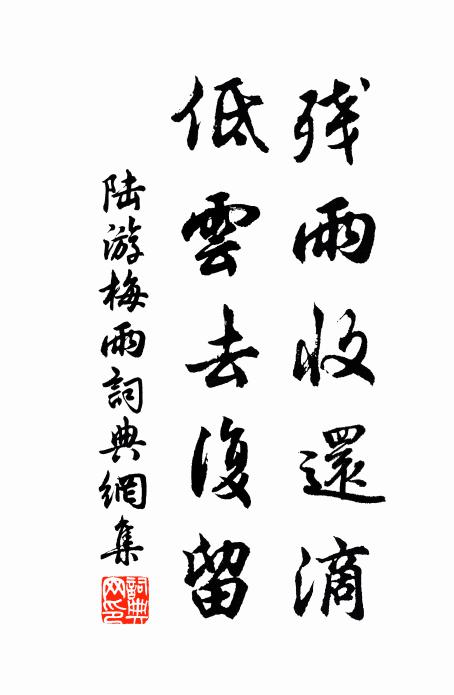 残雨收還滴
低雲去復留
陸游梅雨詞典網集
詞典网印